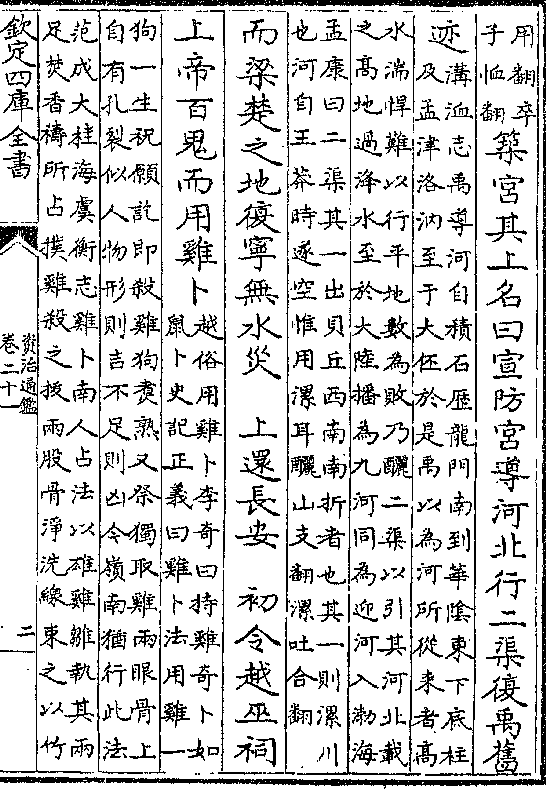 用翻卒
子恤翻
築宮其上名曰宣防宮導河北行二渠復禹舊
迹
溝洫志禹導河自積石歴龍門南到華隂東下底柱
及孟津洛汭至于大伾於是禹以為河所從来者高
水湍悍難以行平地數為敗乃釃二渠以引其河北載
之高地過洚水至於大陸播為九河同為迎河入渤海
孟康曰二渠其一出貝丘西南南折者也其一則漯川
也河自王莽時遂空惟用漯耳釃山支翻漯吐合翻
而梁楚之地復寧無水災　上還長安　初令越巫祠
上帝百鬼而用雞卜
越俗用雞卜李奇曰持雞奇卜如
鼠卜史記正義曰雞卜法用雞一
狗一生祝願訖即殺雞狗煑熟又祭獨取雞兩眼骨上
自有孔裂似人物形則吉不足則凶令嶺南猶行此法
范成大桂海虞衡志雞卜南人占法以雄雞雛執其兩
足焚香禱所占撲雞殺之拔兩股骨淨洗線束之以竹
欽定四庫全書
資治通鑑
卷二十一
二